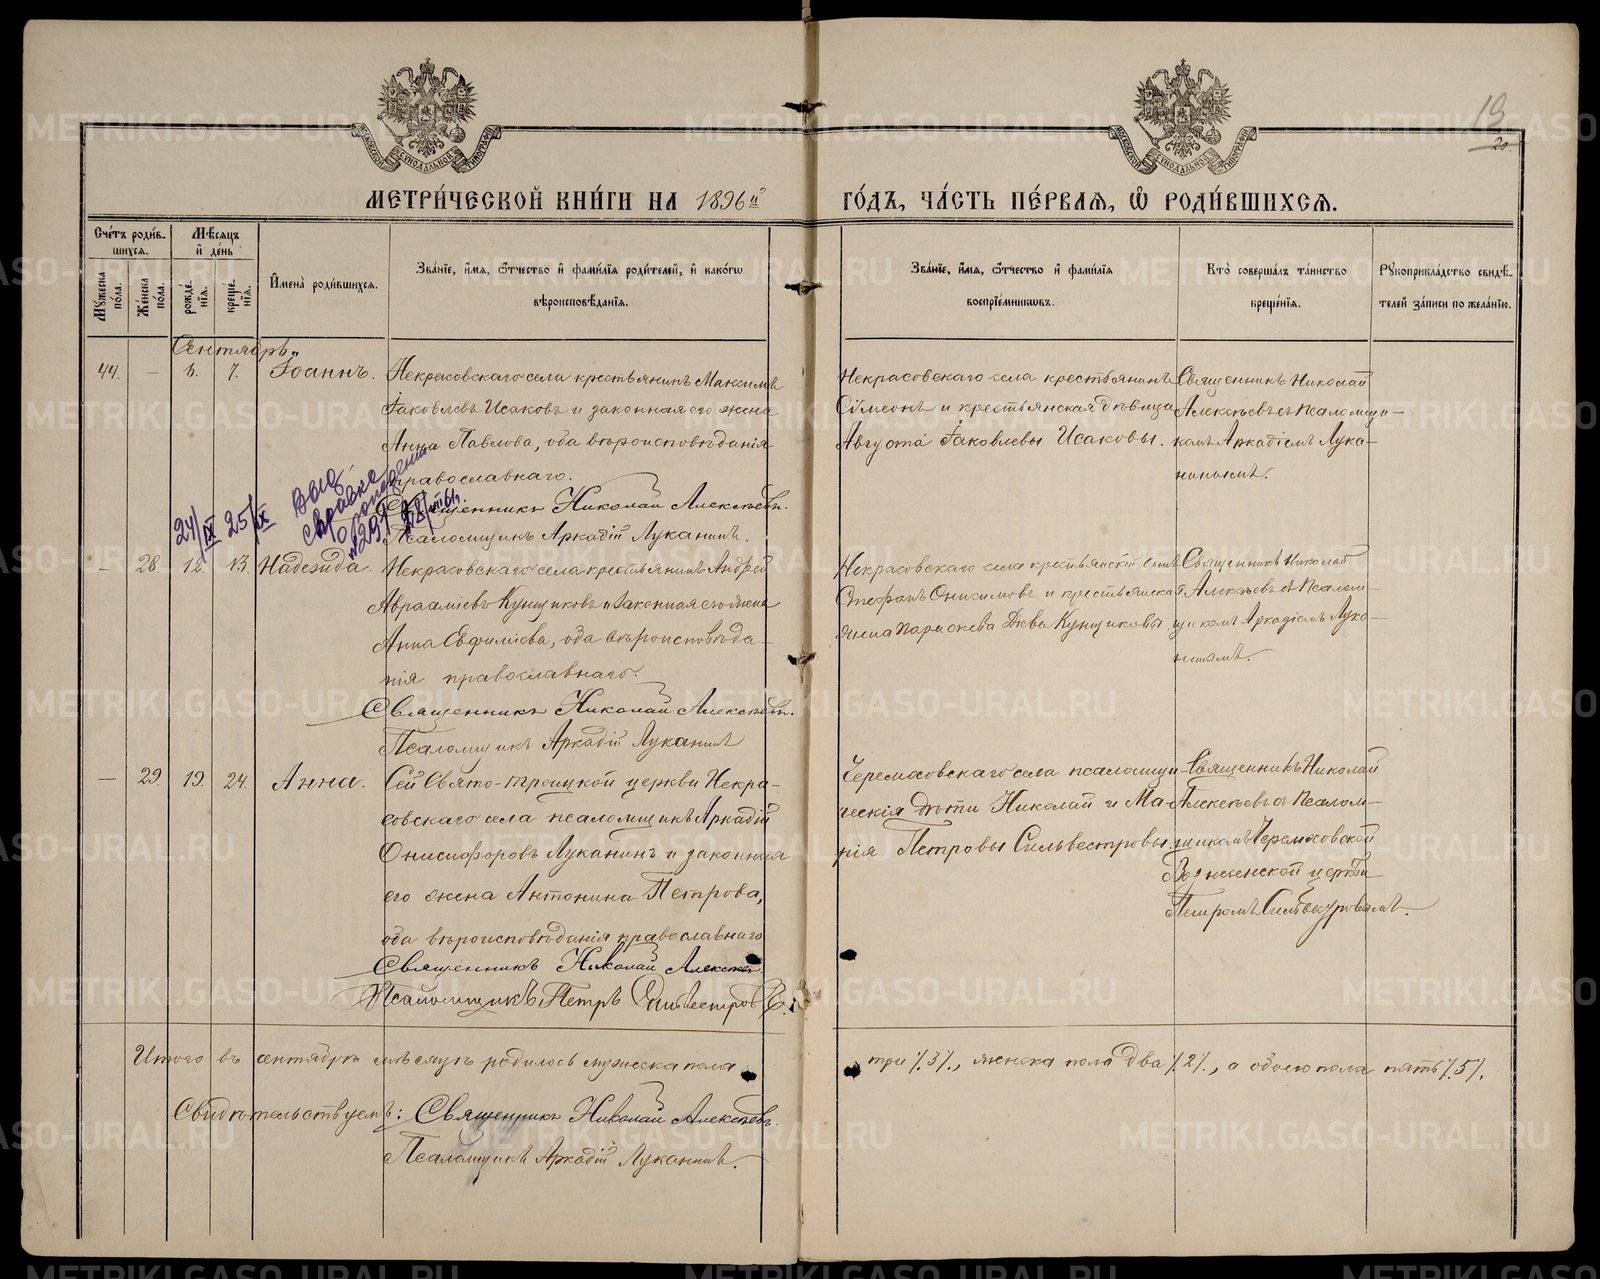 МЕТРИ́ЧЕСКОЙ КНИ́ГИ НА 1896й ГО́ДЪ, ЧА́СТЬ ПЕ́РВАѦ, Ѡ҆ РОДИ́ВШИХСѦ.
19
20
Сче́тъ роди́в-
шихсѧ.
Мѣ́сѧцъ
и҆ де́нь
Мꙋ́жеска по́ла.
Же́нска по́ла.
рожде́нїѧ.
креще́нїѧ.
И҆мена̀ роди́вшихсѧ.
Зва́нїе, и҆́мѧ, ѻ҆́тчество и҆ фами́лїѧ роди́телей, и҆ како́гѡ
вѣроисповѣ́данїѧ.
Зва́нїе, и҆́мѧ, ѻ҆́тчество и҆ фами́лїѧ
воспрїе́мникѡвъ.
Кто̀ соверша́лъ та́инство
креще́нїѧ.
Рꙋкоприкла́дство свидѣ́-
телей за́писи по жела́нїю.
Сентябрь
44. — 6. 7. Іоаннъ.
Некрасовскаго села крестьянинъ Максимъ
Іаковлевъ Исаковъ и законная его жена
Анна Павлова, оба вѣроисповѣданія
православнаго.
Священникъ Николай Алексѣевъ.
Псаломщикъ Аркадій Луканинъ.
Некрасовскаго села крестьянинъ
Сѵмеонъ и крестьянская дѣвица
Августа Іаковлевы Исаковы.
Священникъ Николай
Алексѣевъ съ псаломщи-
комъ Аркадіемъ Лука-
нинымъ.
24/IX 25/IX
выд. справка
о рождении
— 28 12. 13. Надежда.
Некрасовскаго села крестьянинъ Андрей
Авраамієвъ Кунщиковъ и законная его жена
Анна Евфиміева, оба вѣроисповѣда-
нія православнаго.
Священникъ Николай Алексѣевъ.
Псаломщикъ Аркадій Луканинъ
Некрасовскаго села крестьянскій сынъ
Стефанъ Онисимовъ и крестьянская
Параскева Кунщиковы
Священникъ Николай
Алексѣевъ съ псалом-
щикомъ Аркадіемъ Лука-
нинымъ.
— 29. 19. 24. Анна.
Сей Свято-Троицкой церкви Некра-
совскаго села псаломщикъ Аркадій
Онисифоровъ Луканинъ и законная
его жена Антонина Петрова,
оба вѣроисповѣданія православнаго
Священникъ Николай Алексѣевъ.
Псаломщикъ Петръ Сильвестровъ.
Черемховскаго села псаломщи-
ческія дѣти Николай и Ма-
рія Петровы Сильвестровы.
Священникъ Николай
Алексѣевъ съ псалом-
щикомъ Черемховской
церкви
Петромъ Сильвестровымъ.
Итого въ сентябрѣ мѣсяцѣ родилось мужеска пола три /3/., женска пола два /2/., а обоего пола пять /5/.
Свидѣтельствуемъ: Священникъ Николай Алексѣевъ.
Псаломщикъ Аркадій Луканинъ.
METRIKI.GASO-URAL.RU